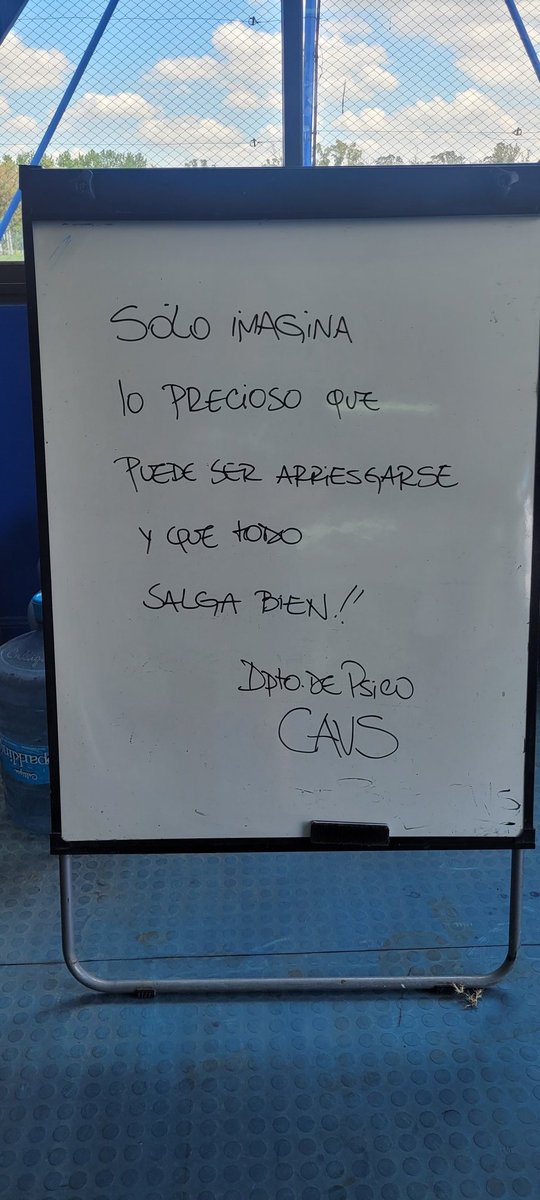 SÓLO IMAGINA
lo PRECIOSO QUE
PUEDE SER ARRIESGARSE
Y QUE TODO
SALGA BIEN!!
Dpto. DE PSICO
CAVS